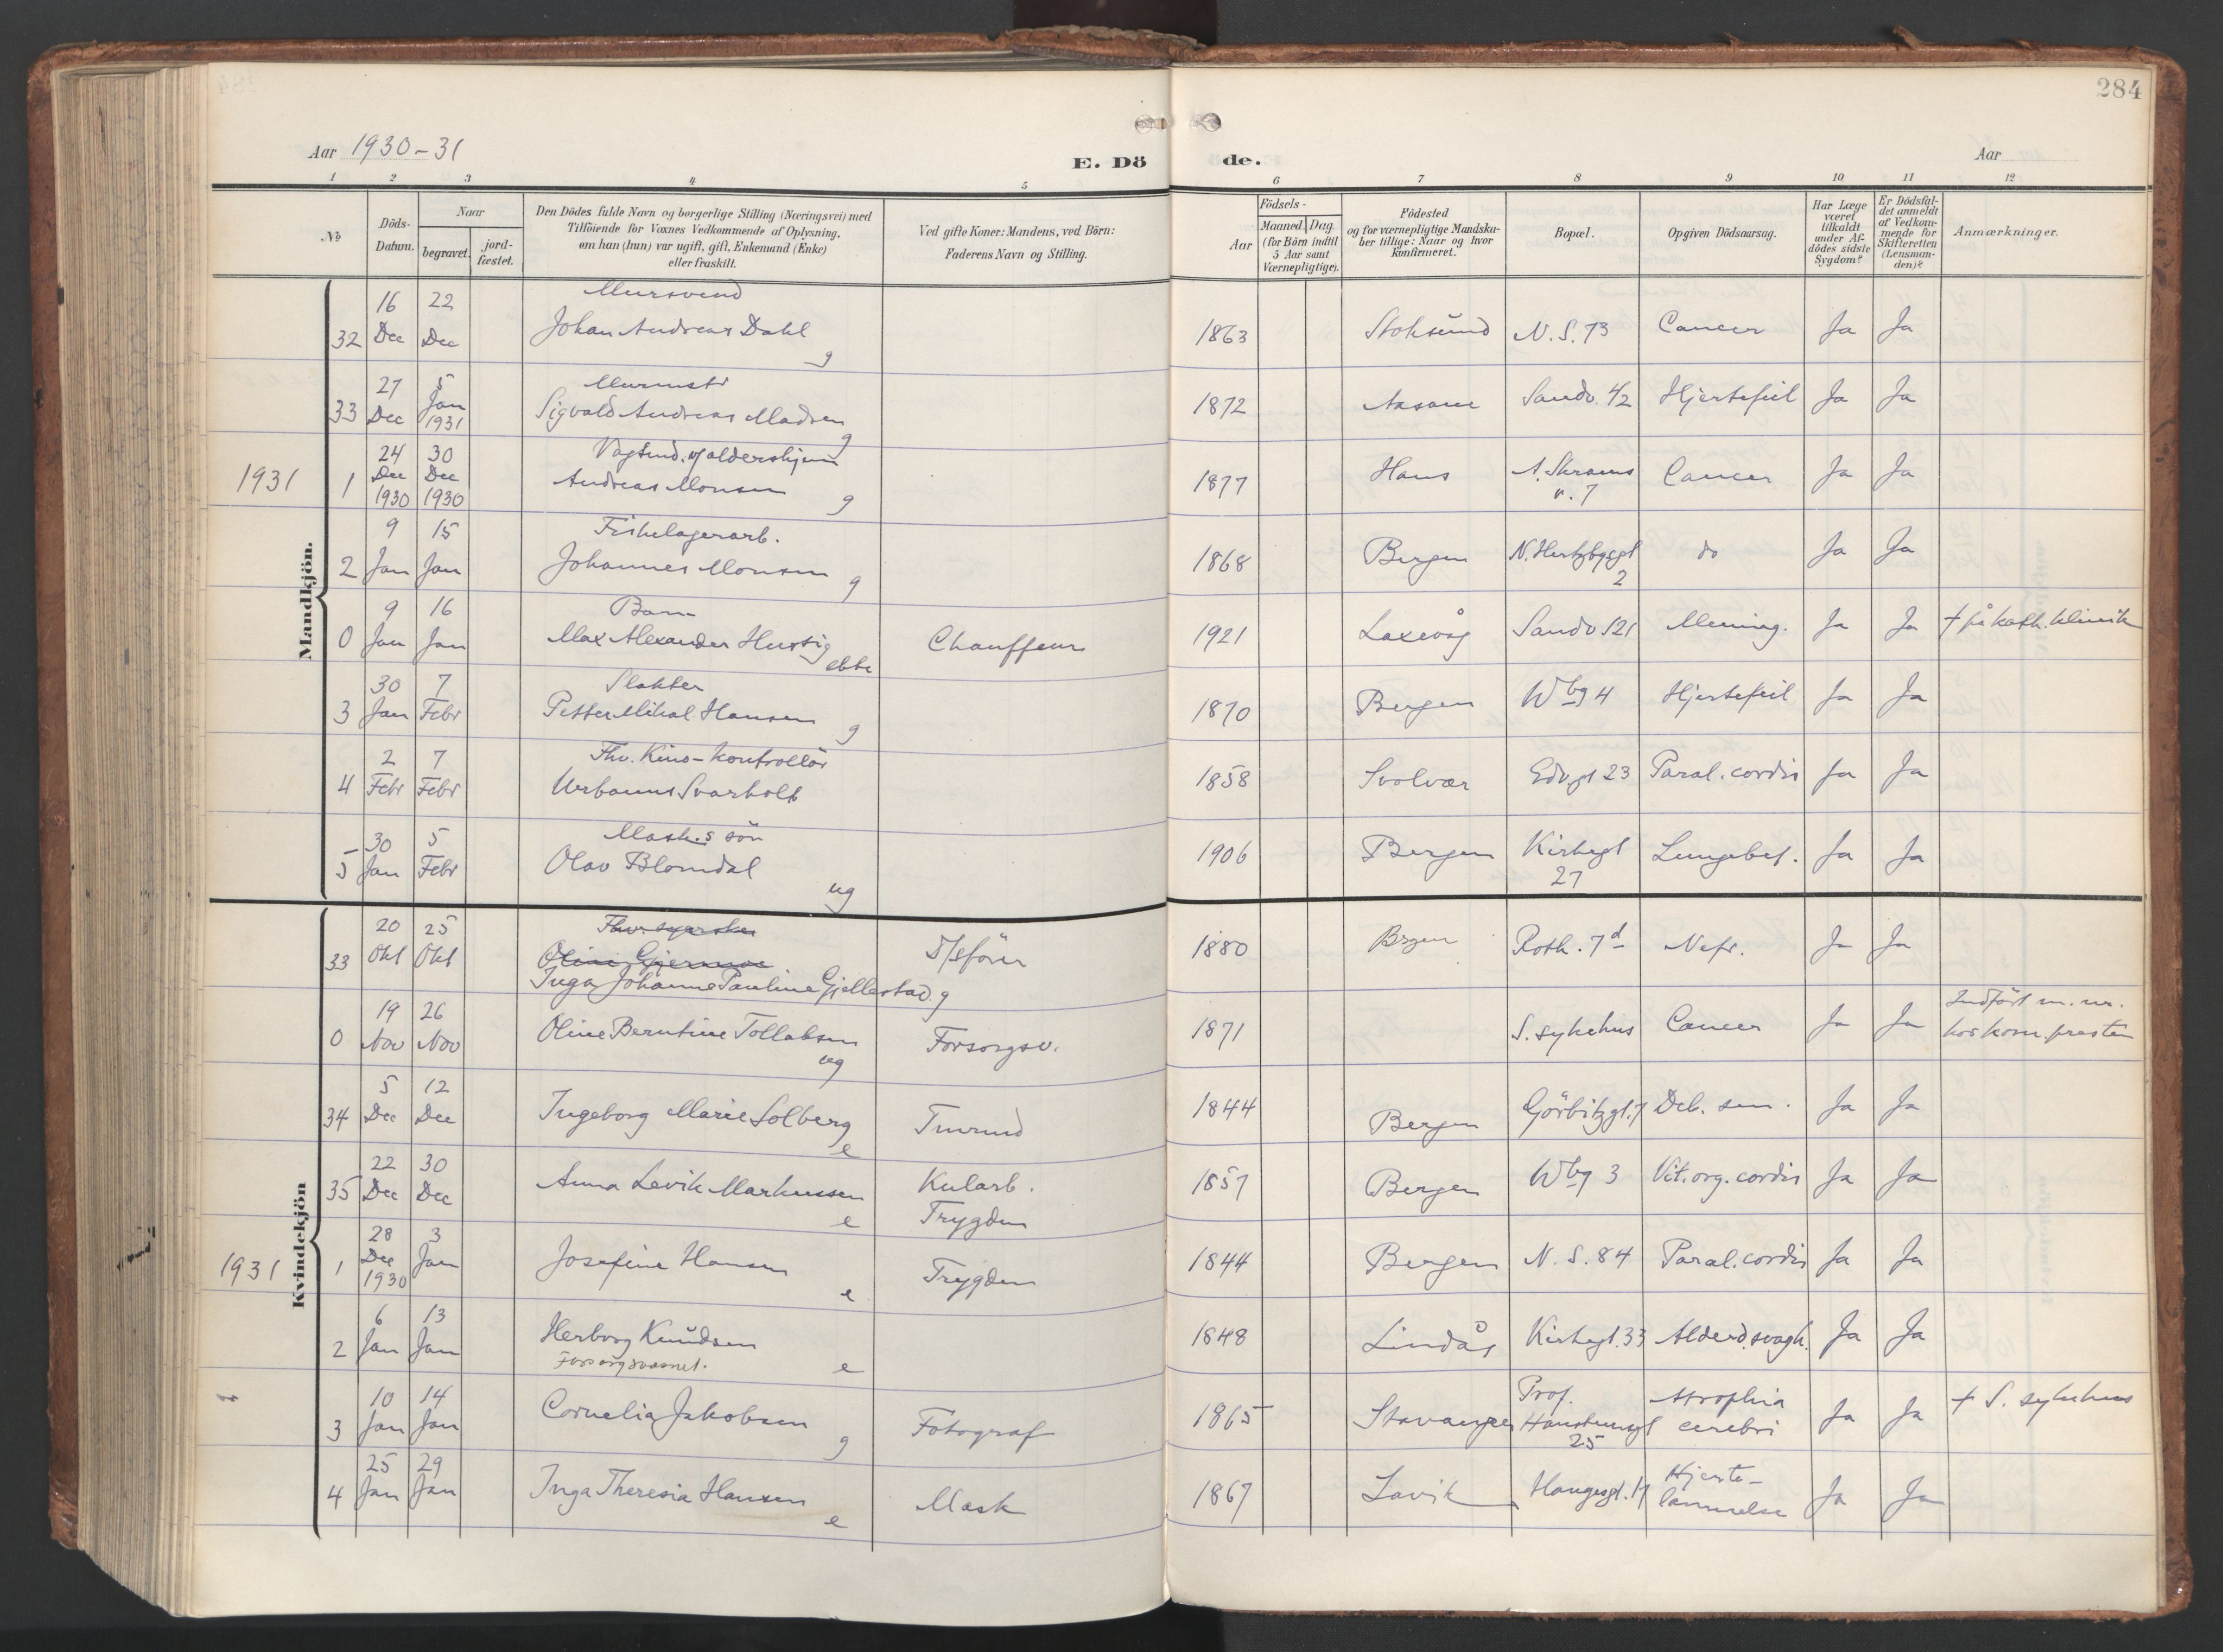 284
Aar 1930-31
E. Döde.
Aar
1 2 3 4 5 6 7 8 9 10 11 12
No
Döds-Datum.
Naar
begravet.
jord-fæstet.
Den Dödes fulde Navn og borgerlige Stilling (Næringsvei) med
Tilföiende for Voxnes Vedkommende af Oplysning,
om han (hun) var ugift, gift, Enkemand (Enke)
eller fraskilt.
Ved gifte Koner: Mandens, ved Börn:
Faderens Navn og Stilling.
Födsels-
Aar
Maaned. Dag.
(for Börn indtil
5 Aar samt
Værnepligtige).
Födested
og for værnepligtige Mandska-
ber tillige: Naar og hvor
konfirmeret.
Bopæl.
Opgiven Dödsaarsag.
Har Læge
været
tilkaldt
under Af-
dödes sidste
Sygdom?
Er Dödsfal-
det anmeldt
af Vedkom-
mende for
Skifteretten
(Lensman-
den)?
Anmærkninger.
Mandkjön.
32 16 Dec 22 Dec Mursvend Johan Andreas Dahl g 1863 Stoksund N. S. 73 Cancer Ja Ja
33 27 Dec 5 Jan 1931 Murmstr Sigvald Andreas Madsen g 1872 Aasane Sandv. 42 Hjertefeil Ja Ja
1931 1 24 Dec 1930 30 Dec 1930 aldershjem Andreas Monsen g 1877 Haus A. Skrams v. 7 Cancer Ja Ja
2 9 Jan 15 Jan Fiskelagerarb. Johannes Monsen g 1868 Bergen N. 2 do Ja Ja
0 9 Jan 16 Jan Barn Max Alexander Hustig ekte Chauffeur 1921 Laxevåg Sandv 121 Mening. Ja Ja † på kath. klinik
3 30 Jan 7 Febr Slakter Petter Mikal Hansen g 1870 Bergen Wbg 4 Hjertefeil Ja Ja
4 2 Febr 7 Febr Fhv. Kino-kontrollör Urbanus Svarholt 1858 Svolvær Edv.gt 23 Paral. cordis Ja Ja
5 30 Jan 5 Febr Mask.s sön Olav Blomdal ug 1906 Bergen Kirkegt 27 Lungebet. Ja Ja
Kvindekjön
33 20 Okt 25 Okt Fhv. syerske Oline Inga Johanne Pauline Gjellestad. g D/sförer 1880 Brgen Roth. 7d Nefr. Ja Ja
0 19 Nov 26 Nov Oline Berntine Tollaksen ug Forsorgsv. 1871 S. sykehus Cancer Ja Ja Indfört m. nr. hos kom. presten
34 5 Dec 12 Dec Ingeborg Marie Solberg e Tmrmd 1844 Bergen Görbitzgt. 7 Deb. sen. Ja Ja
35 22 Dec 30 Dec Anna Levik Markussen e Kularb. Trygden 1857 Bergen Wbg 3 Vit. org. cordis Ja Ja
1931 1 28 Dec 1930 3 Jan Josefine Hansen e Trygden 1844 Bergen N. S. 84 Paral. cordis Ja Ja
2 6 Jan 13 Jan Herborg Knudsen Forsorgsvæsnet. e 1848 Lindås Kirkegt. 33 Alderd.svagh. Ja Ja
3 10 Jan 14 Jan Cornelia Jakobsen g Fotograf 1865 Stavanger Prof. Hansteensgt 25 Atrophia cerebri Ja Ja † S. sykehus
4 25 Jan 29 Jan Inga Theresia Hansen e Mask 1867 Lavik Haugesgt. 17 Hjerte-lammelse Ja Ja